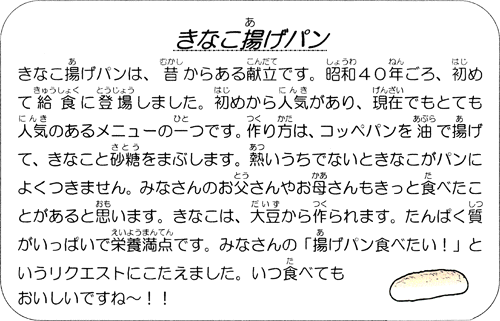 きなこ揚げパン
きなこ揚げパンは、昔からある献立です。昭和40年ごろ、初め
て給食に登場しました。初めから人気があり、現在でもとても
人気のあるメニューの一つです。作り方は、コッペパンを油で揚げ
て、きなこと砂糖をまぶします。熱いうちでないときなこがパンに
よくつきません。みなさんのお父さんやお母さんもきっと食べたこ
とがあると思います。きなこは、大豆から作られます。たんぱく質
がいっぱいで栄養満点です。みなさんの「揚げパン食べたい！」と
いうリクエストにこたえました。いつ食べても
おいしいですね～！！